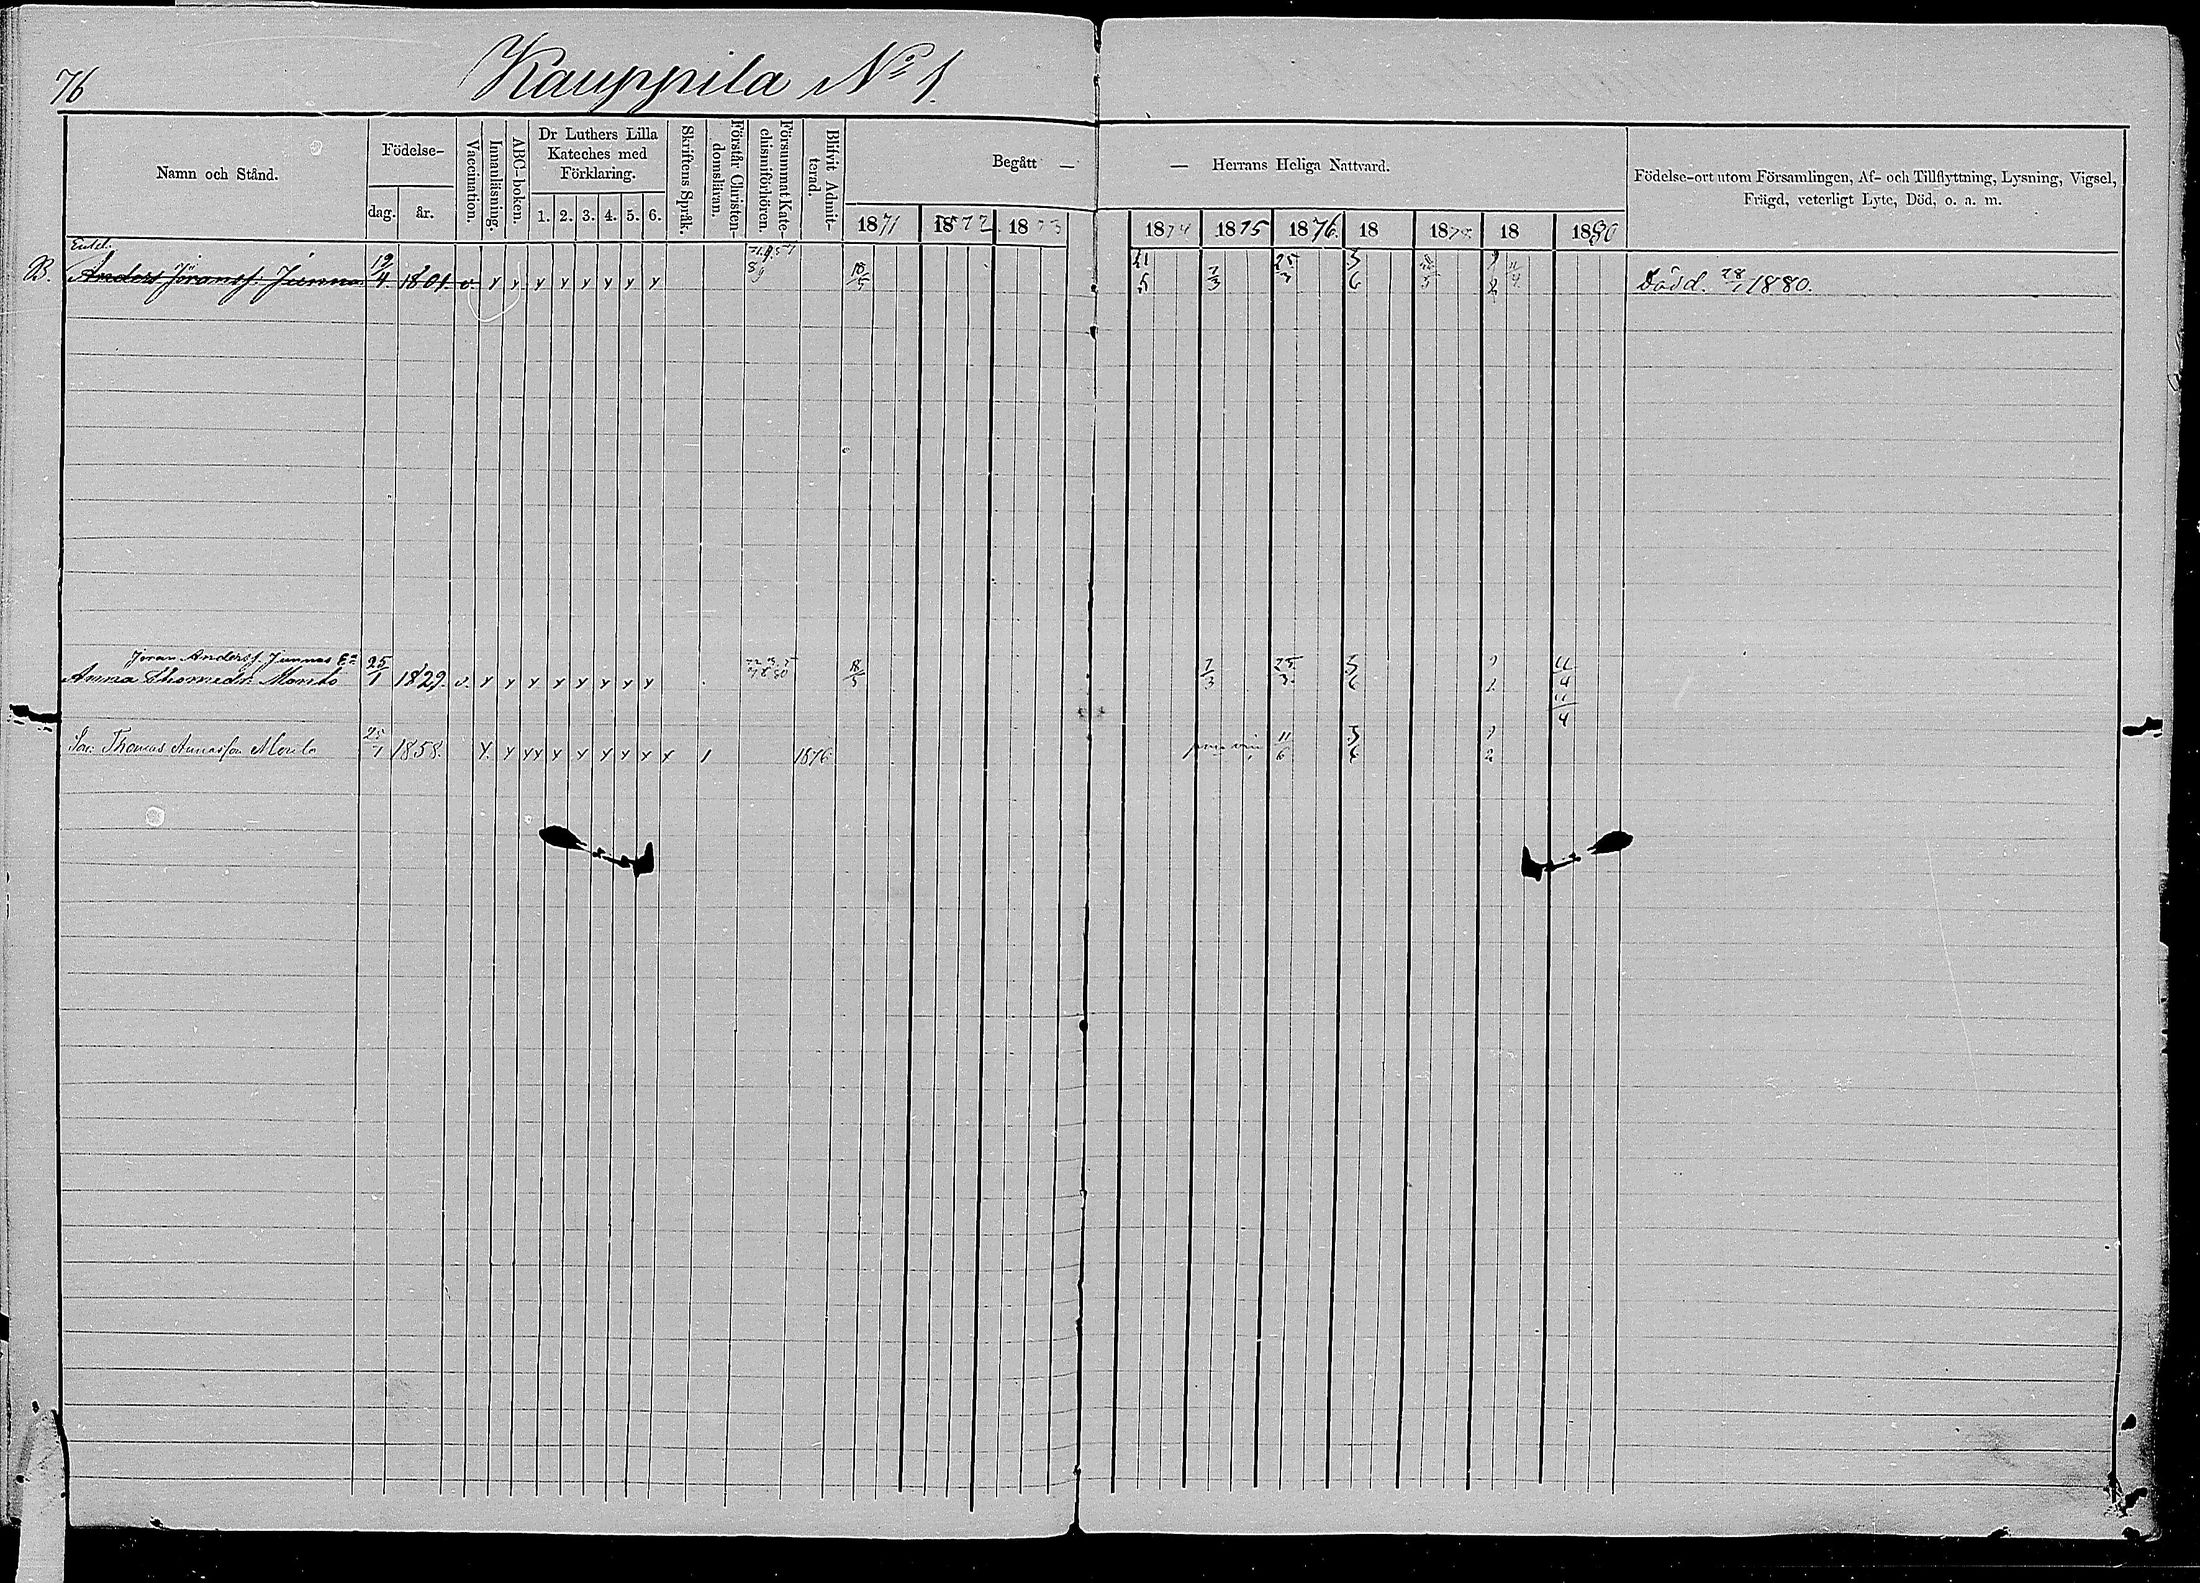 76
Kauppila No 1.
Namn och Stånd.
Födelse-
dag. år.
Vaccination.
Innanläsning.
ABC-boken.
Dr Luthers Lilla
Kateches med
Förklaring.
1. 2. 3. 4. 5. 6.
Skriftens Språk.
Förstår Christen-
domsläran.
Försummat Kate-
chismiförhören.
Blifvit Admit-
terad.
Begått —
— Herrans Heliga Nattvard.
1871 1872 1873 1874 1875 1876. 18 1878 18 1880
Födelse-ort utom Församlingen, Af- och Tillflyttning, Lysning, Vigsel,
Frägd, veterligt Lyte, Död, o. a. m.
B. Anders Jöranss. Junnas 19/4 1801. v y y y y y y y y 18/5 21/5 7/3 25/3 5/6 Död d. 28/1 1880.
Jöran Anderss. Junnas
Anna Thomedr. 25/1 1829. v. y y y y y y y y 18/5 7/3 25/3 5/6 11/4 11/4
Thomas 25/1 1858. y. y y y y y y y y y 1 1876 11/6 5/6